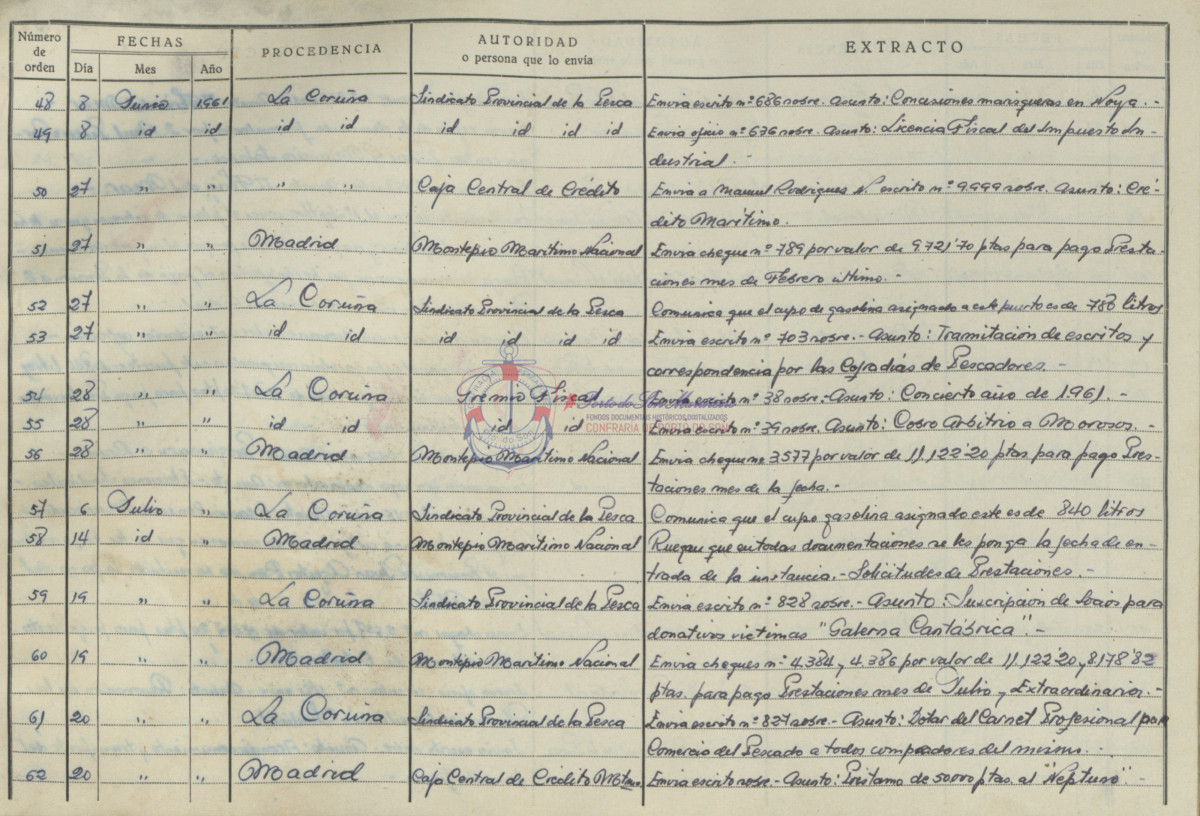 Número de orden FECHAS Día Mes Año PROCEDENCIA AUTORIDAD o persona que lo envía EXTRACTO
48 8 Junio 1961 La Coruña Sindicato Provincial de la Pesca Envia escrito nº 686 sobre. Asunto: Concesiones marisqueras en Noya. -
49 8 id id id id id id id id Envia oficio nº 636 sobre. Asunto: Licencia Fiscal del Impuesto In-
dustrial. -
50 27 " " " " Caja Central de Crédito Envia a Manuel Rodrigues N. escrito nº 9.999 sobre. Asunto: Cré-
dito Marítimo.
51 27 " " Madrid Montepio Marítimo Nacional Envia cheque nº 789 por valor de 9.721'70 ptas para pago Presta-
ciones mes de Febrero último. -
52 27 " " La Coruña Sindicato Provincial de la Pesca Comunica que el cupo de gasolina asignado a este puerto es de 786 litros
53 27 " " id id id id id id Envia escrito nº 703 sobre. - Asunto: Tramitación de escritos y
correspondencia por las Cofradías de Pescadores. -
54 28 " " La Coruña Gremio Fiscal Envia escrito nº 38 sobre. Asunto: Concierto año de 1.961. -
55 28 " " id id id id Envia escrito nº 39 sobre. Asunto: Cobro Arbitrio a Morosos. -
56 28 " " Madrid Montepio Marítimo Nacional Envia cheque nº 3.577 por valor de 11.122'20 ptas. para pago Pres-
taciones mes de la fecha. -
57 6 Julio " La Coruña Sindicato Provincial de la Pesca Comunica que el cupo gasolina asignado este es de 840 litros
58 14 id " Madrid Montepio Marítimo Nacional Ruegan que en todas documentaciones se les ponga la fecha de en-
trada de la instancia. - Solicitudes de Prestaciones. -
59 19 " " La Coruña Sindicato Provincial de la Pesca Envia escrito nº 828 sobre. - Asunto: Suscripción de Socios para
donativos victimas "Galerna Cantábrica". -
60 19 " " Madrid Montepio Marítimo Nacional Envia cheques nº 4.384 y 4.386 por valor de 11.122'20 y 8.178'82
ptas. para pago Prestaciones mes de Julio y Extraordinarios. -
61 20 " " La Coruña Sindicato Provincial de la Pesca Envia escrito nº 827 sobre. - Asunto: Dotar del Carnet Profesional para
Comercio del Pescado a todos compradores del mismo. -
62 20 " " Madrid Caja Central de Crédito Mtmo. Envia escrito sobre. - Asunto: Préstamo de 50.000 ptas. al "Neptuno". -
FONDOS DOCUMENTAIS HISTÓRICOS DIGITALIZADOS
CONFRARÍA DE PORTO DO SON